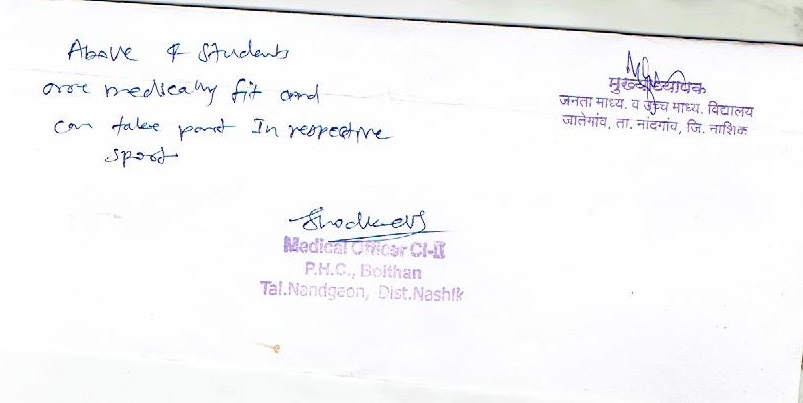 Above 4 Students
are medically fit and
can take part In respective
sport
मुख्याध्यापक
जनता माध्य. व उच्च माध्य. विद्यालय
जातेगांव, ता. नांदगांव, जि. नाशिक
Medical Officer Cl-II
P.H.C., Bolthan
Tal.Nandgaon, Dist.Nashik